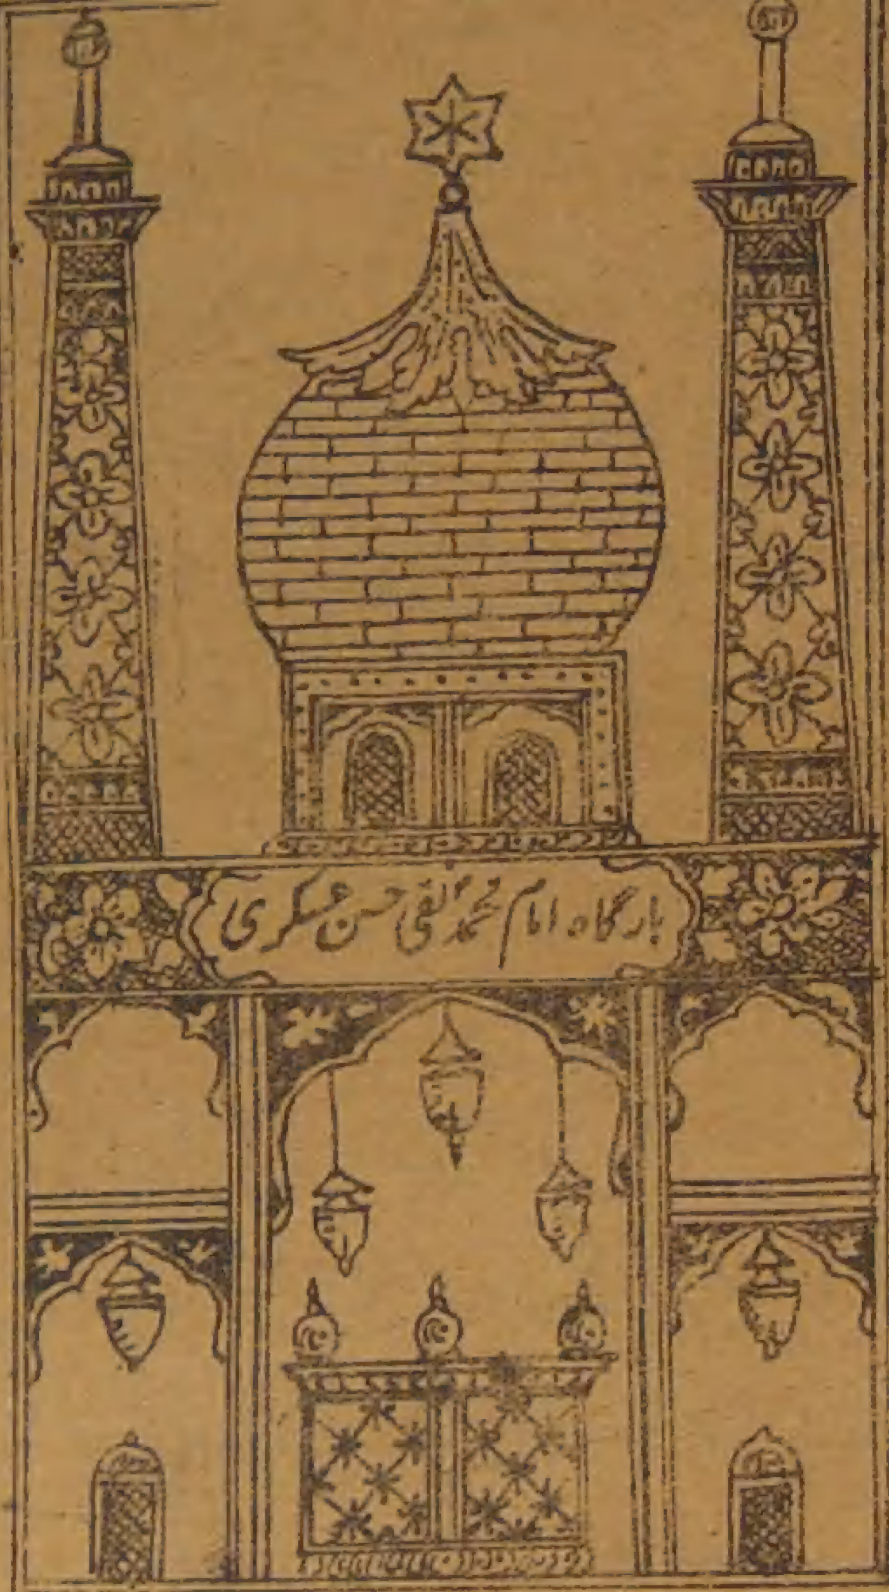 بارگاه امام محمد نقی حسن عسکری